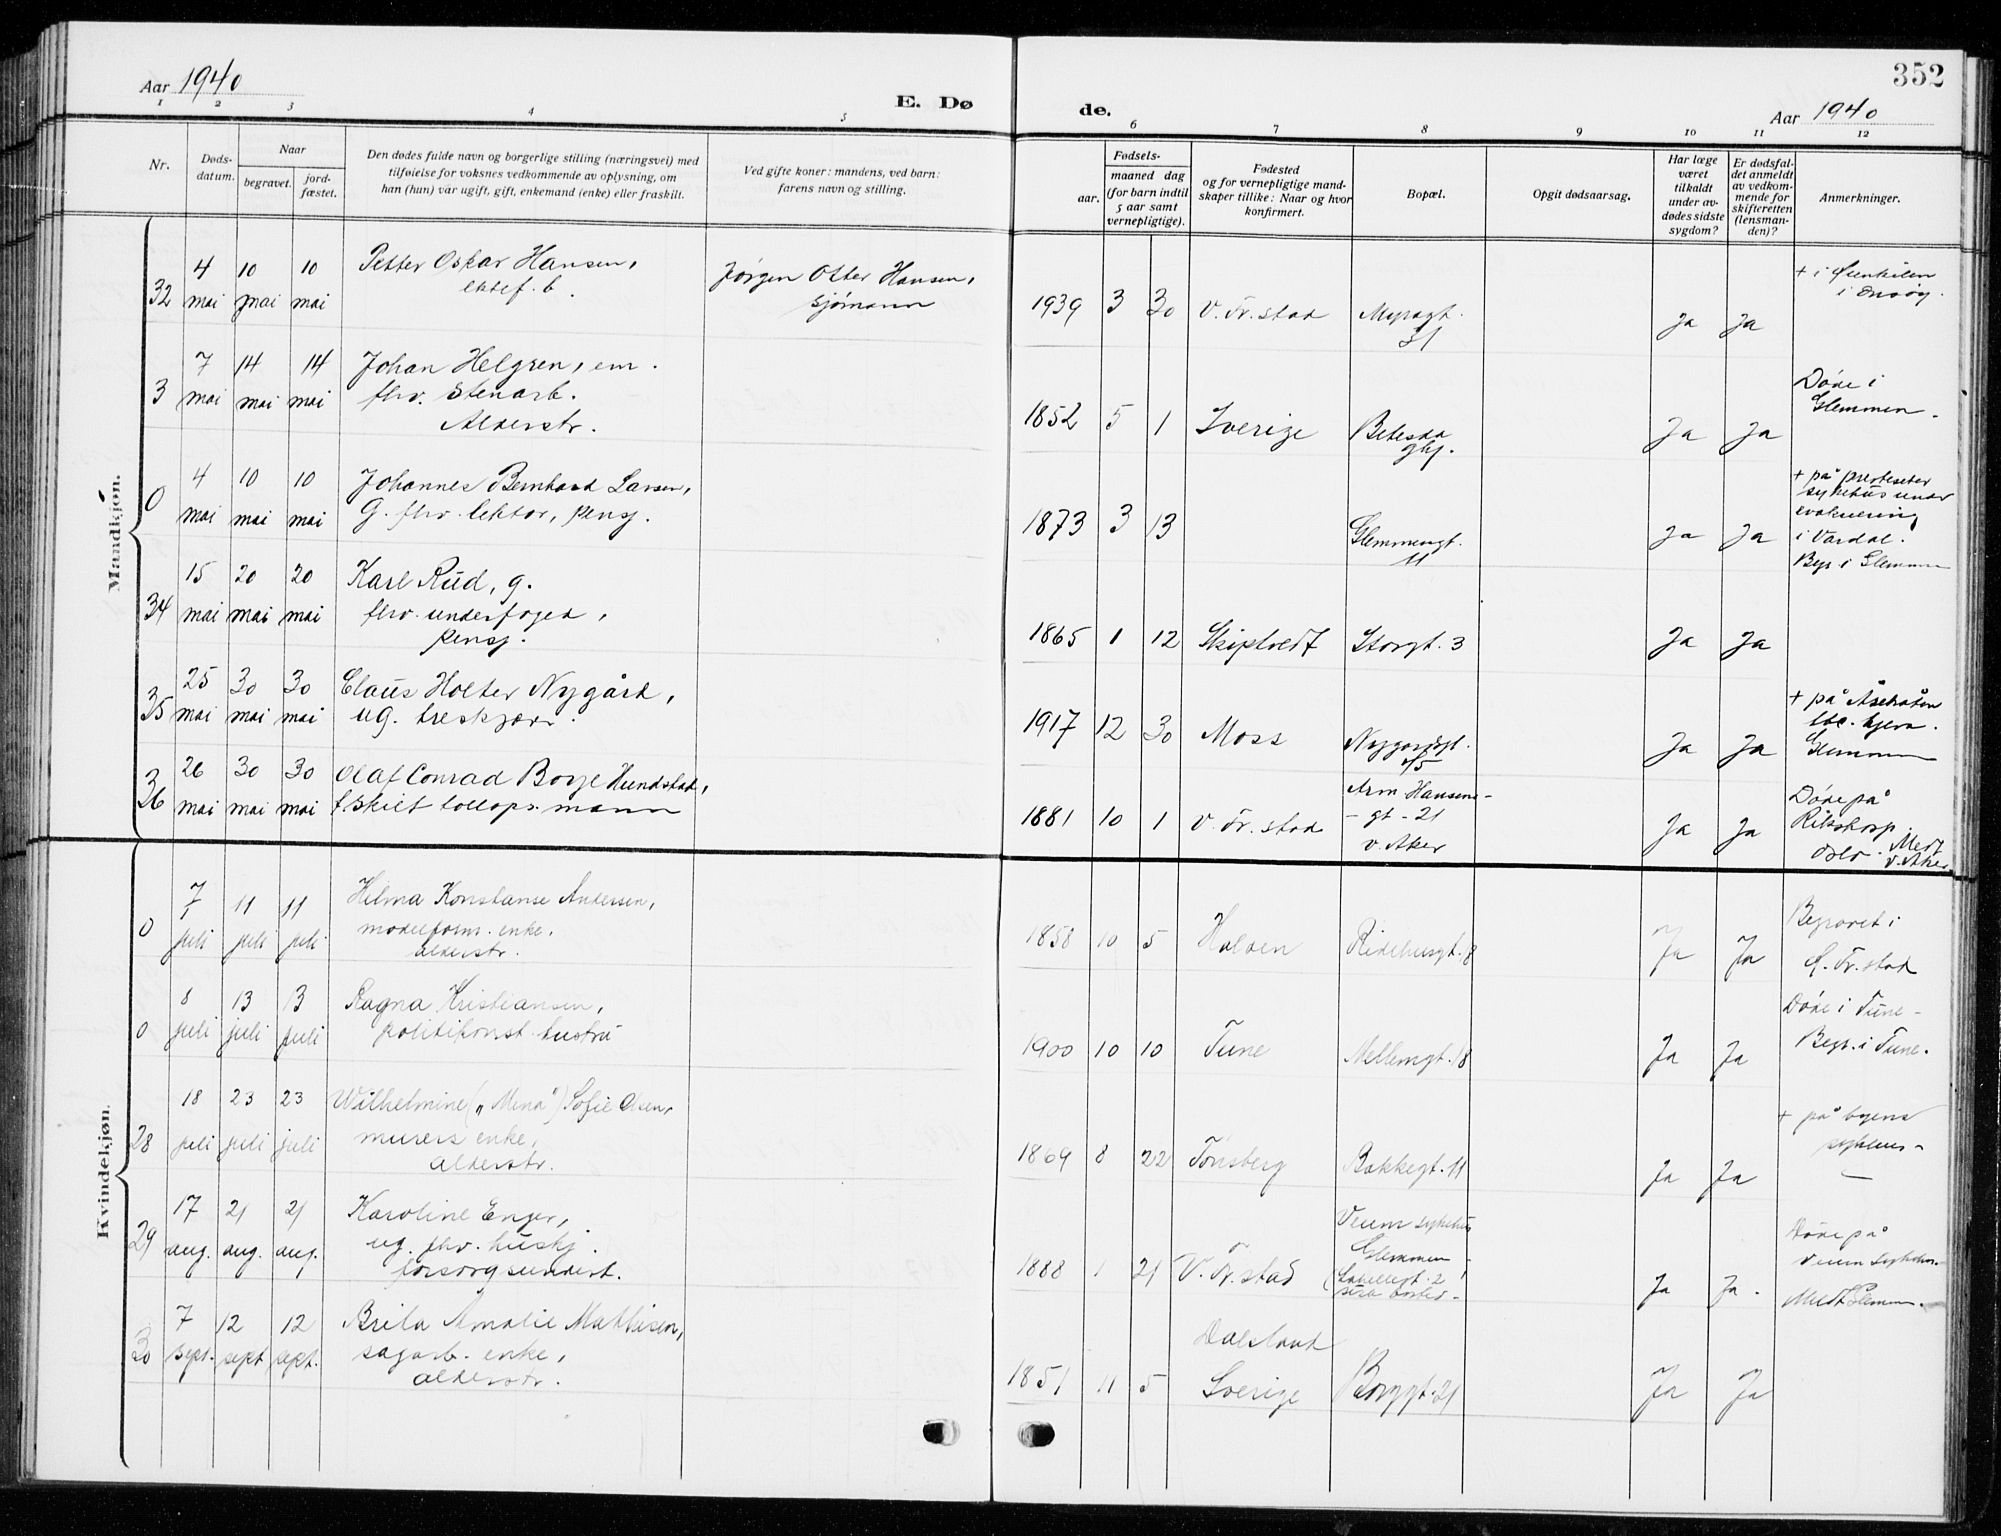 352
Aar 1940
E. Dø de.
Aar 1940
1 2 3 4 5 6 7 8 9 10 11 12
Nr.
Døds-
datum.
Naar
begravet.
jord-
fæstet.
Den dødes fulde navn og borgerlige stilling (næringsvei) med
tilføielse for voksnes vedkommende av oplysning, om
han (hun) var ugift, gift, enkemand (enke) eller fraskilt.
Ved gifte koner: mandens, ved barn:
farens navn og stilling.
Fødsels-
aar.
maaned dag
(for barn indtil
5 aar samt
vernepligtige).
Fødested
og for vernepligtige mand-
skaper tillike: Naar og hvor
konfirmert.
Bopæl.
Opgit dødsaarsag.
Har læge
været
tilkaldt
under av-
dødes sidste
sygdom?
Er dødsfal-
det anmeldt
av vedkom-
mende for
skifteretten
(lensman-
den)?
Anmerkninger.
Mandkjøn.
32 4 mai 10 mai 10 mai
Petter Oskar Hansen,
ektef. b.
Jørgen Otter Hansen,
sjømann
1939 3 30 V. Fr. stad
Myragt.
31
Ja Ja
+ i
i Onsøy.
3 7 mai 14 mai 14 mai
Johan Helgren, em.
fhv. stenarb.
Alderstr.
1852 5 1 Sverige
Betesda
ghj.
Ja Ja
Døde i
Glemmen.
0 4 mai 10 mai 10 mai
Johannes Bernhard Larsen,
G. fhv. lektor, pensj.
1873 3 13
Glemmengt.
11
Ja Ja
+ på presteseter
sykehus under
evakuering
i Vardal.
Begr. i Glemmen
34 15 mai 20 mai 20 mai
Karl Rud, g.
fhv. underfoged,
pensj.
1865 1 12 Skiptvedt Storgt. 3 Ja Ja
35 25 mai 30 mai 30 mai
Claus Holter Nygård,
ug. treskjærer.
1917 12 30 Moss
Nygårdsgt.
Ja Ja
+ på
tbc. hjem.
Glemmen
36 26 mai 30 mai 30 mai
Olaf Conrad Borge Hundstad,
f. skilt tollopps. mann
1881 10 1 V. Fr. stad
Arm Hansens-
- gt - 21
v. Aker
Ja Ja
Døde på
Rikshosp.
Oslo. Medt
v. Aker
Kvindekjøn.
0 7 juli 11 juli 11 juli
Hilma Konstanse Andersen,
modelform. enke,
alderstr.
1858 10 5 Halden Ridehusgt. 8 Ja Ja
Begravet i
G. Fr. stad
0 8 juli 13 juli 13 juli
Ragna Kristiansen,
politikonst. hustru
1900 10 10 Tune Mellemgt. 18 Ja Ja
Døde i Tune-
Begr. i Tune.
28 18 juli 23 juli 23 juli
Wilhelmine („Mina") Sofie Olsen,
murers enke,
alderstr.
1869 8 22 Tønsberg Bakkegt. 11 Ja Ja
+ på byens
sykehus-
29 17 aug. 21 aug. 21 aug.
Karoline Enger,
ug. fhv. huskj.
forsorgsunderst.
1888 1 21 V. Fr. stad
Veum sykehus
Glemmen
Ja Ja.
Døde på
Veum sykehus-
Medt Glemm.
30 7 sept. 12 sept 12 sept.
Brita Amalie Mathisen,
sagarb. enke,
alderstr.
1851 11 5
Dalsland
Sverige
Borggt. 21
Ja Ja